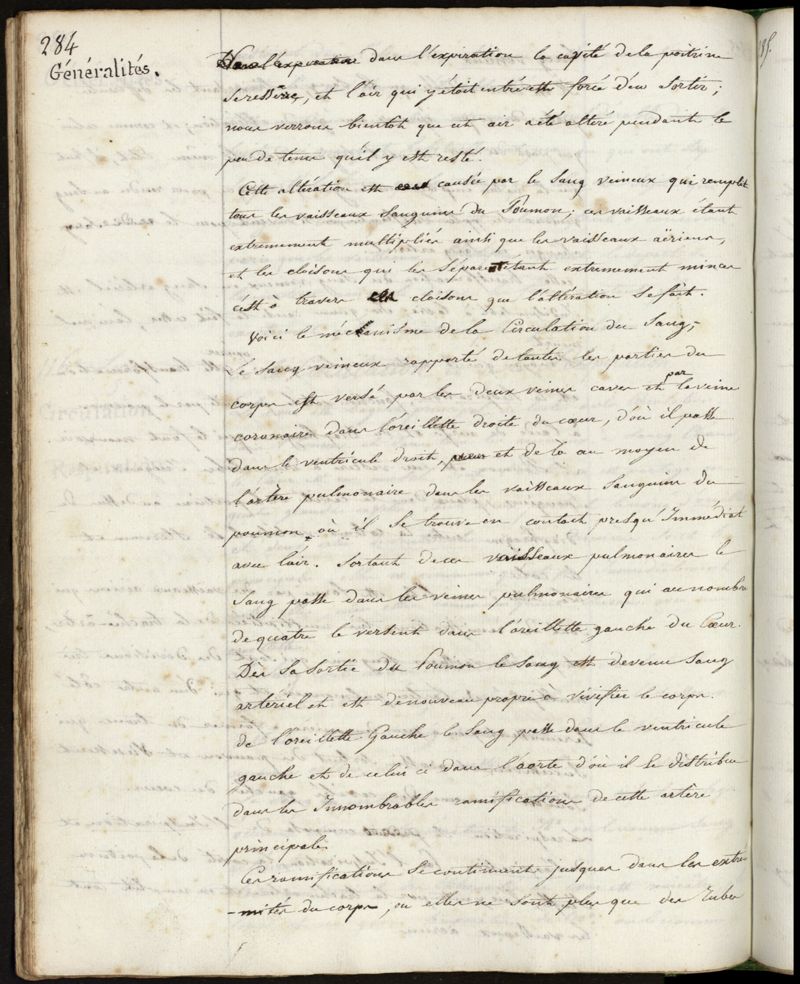 284
Généralités.
dans l'expiration la cavité de la poitrine
se resserre, et l'air qui y était entré est forcé d'en sortir;
nous verrons bientôt que cet air a été altéré pendant le
peu de tems qu'il y est resté.
Cette altération est causée par le sang veineux qui remplit
tous les vaisseaux sanguins du Poumon; ces vaisseaux étant
extremement multipliés ainsi que les vaisseaux aëriens,
et les cloisons qui les séparent étant extremement minces
c'est à travers ces cloisons que l'altération se fait.
Voici le méchanisme de la Circulation du Sang;
le Sang veineux rapporté de toutes les parties du
corps est versé par les deux veines caves et par la veine
coronaire dans l'oreillette droite du cœur, d'où il passe
dans le ventricule droit, et de là au moyen de
l'artère pulmonaire dans les vaisseaux sanguins du
poumon, où il se trouve en contact presqu'Immédiat
avec l'air. Sortant de ces vaisseaux pulmonaires le
Sang passe dans les veines pulmonaires qui au nombre
de quatre le versent dans l'oreillette gauche du Cœur.
Dès sa sortie du Poumon le sang est devenu sang
artériel et est de nouveau propre à vivifier le corps.
de l'oreillette Gauche le Sang passe dans le ventricule
gauche et de celui ci dans l'aorte d'où il se distribue
dans les Innombrables ramifications de cette artère
principale.
Ces ramifications se continuent jusques dans les extré
-mités du corps, où elles ne sont plus que des Tubes